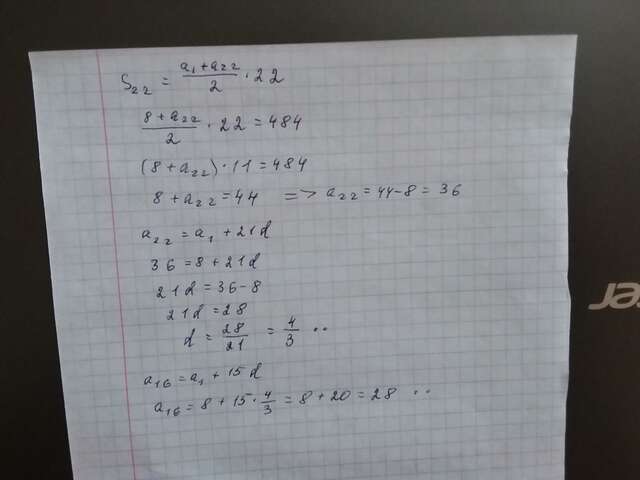 S₂₂ = (a₁ + a₂₂)/2 · 22
(8 + a₂₂)/2 · 22 = 484
(8 + a₂₂) · 11 = 484
8 + a₂₂ = 44 => a₂₂ = 44 - 8 = 36
a₂₂ = a₁ + 21d
36 = 8 + 21d
21d = 36 - 8
21d = 28
d = 28/21 = 4/3 ..
a₁₆ = a₁ + 15d
a₁₆ = 8 + 15 · 4/3 = 8 + 20 = 28 ..